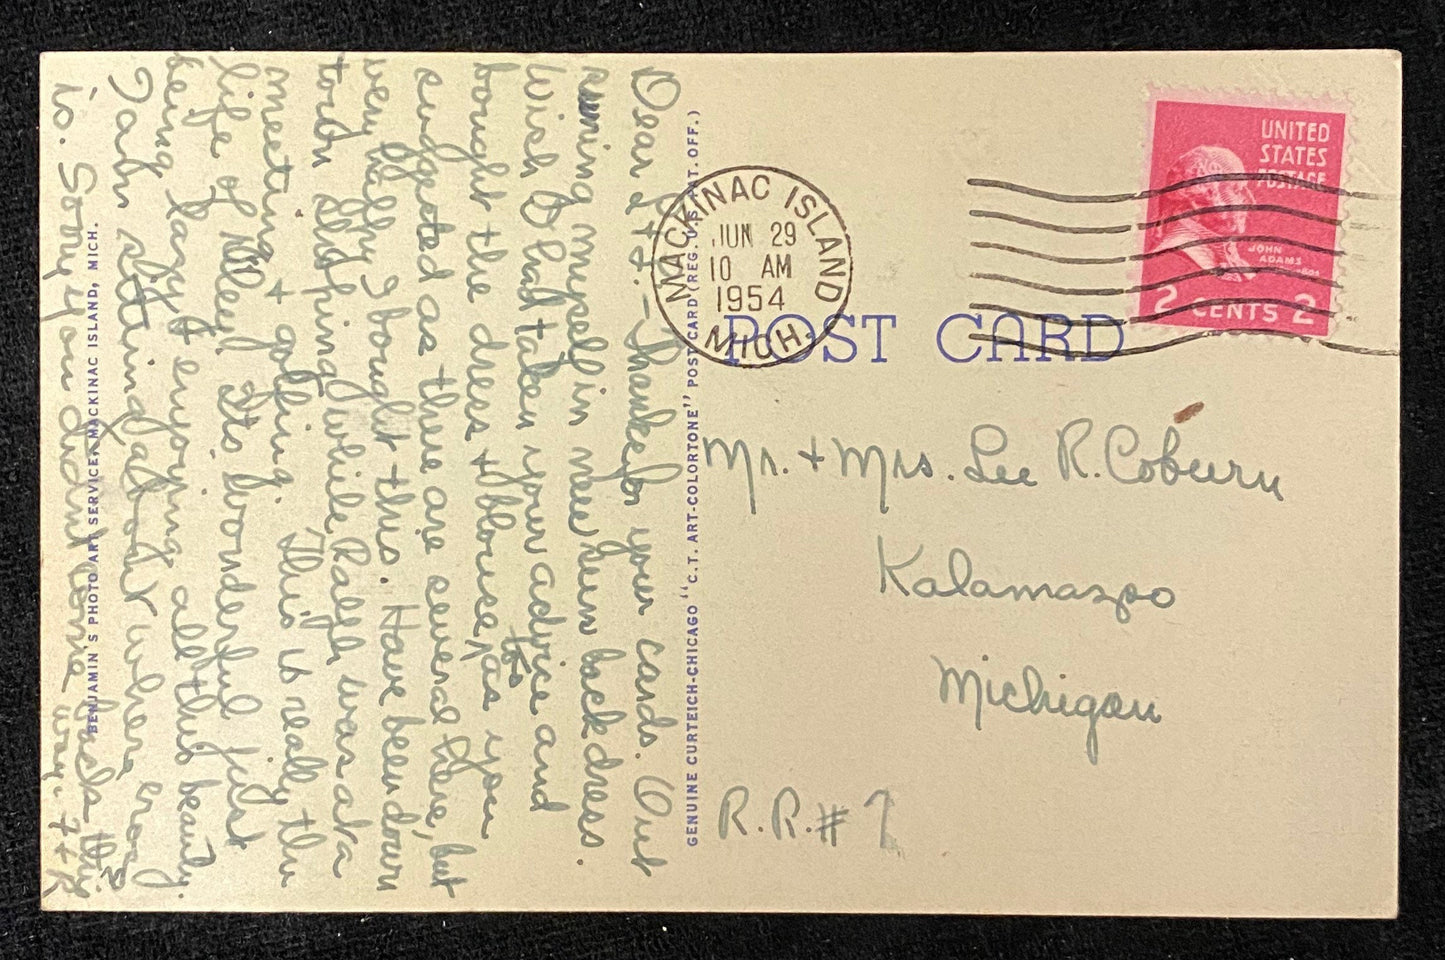 Dear L + L. — Thanks for your cards. Out
sunning myself in new sun back dress.
Wish I had taken your advice and
bought the dress + blouse too as you
sudgested as there are several here, but
very silly I bought this. Have been down
town shopping while Ralph was at a
meeting + golfing. This is really the
life of Riley! It's wonderful just
being lazy + enjoying all this beauty.
Talk sitting about where
is. Sorry you didn't come way. F + R
BENJAMIN'S PHOTO ART SERVICE, MACKINAC ISLAND, MICH.
GENUINE CURTEICH-CHICAGO "C.T. ART-COLORTONE" POST CARD (REG. U.S. PAT. OFF.)
MACKINAC ISLAND
JUN 29
10 AM
1954
MICH.
UNITED
STATES
POSTAGE
JOHN
ADAMS
2 CENTS 2
POST CARD
Mr. + Mrs. Lee R. Coburn
Kalamazoo
Michigan
R.R. # 7